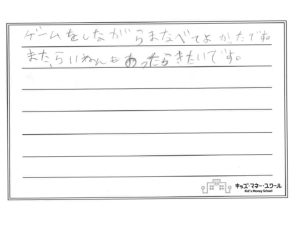 ゲームをしながらまなべてよかたです。
また、らいねんもあったらきたいです。
キッズ・マネー・スクール
Kid's Money School